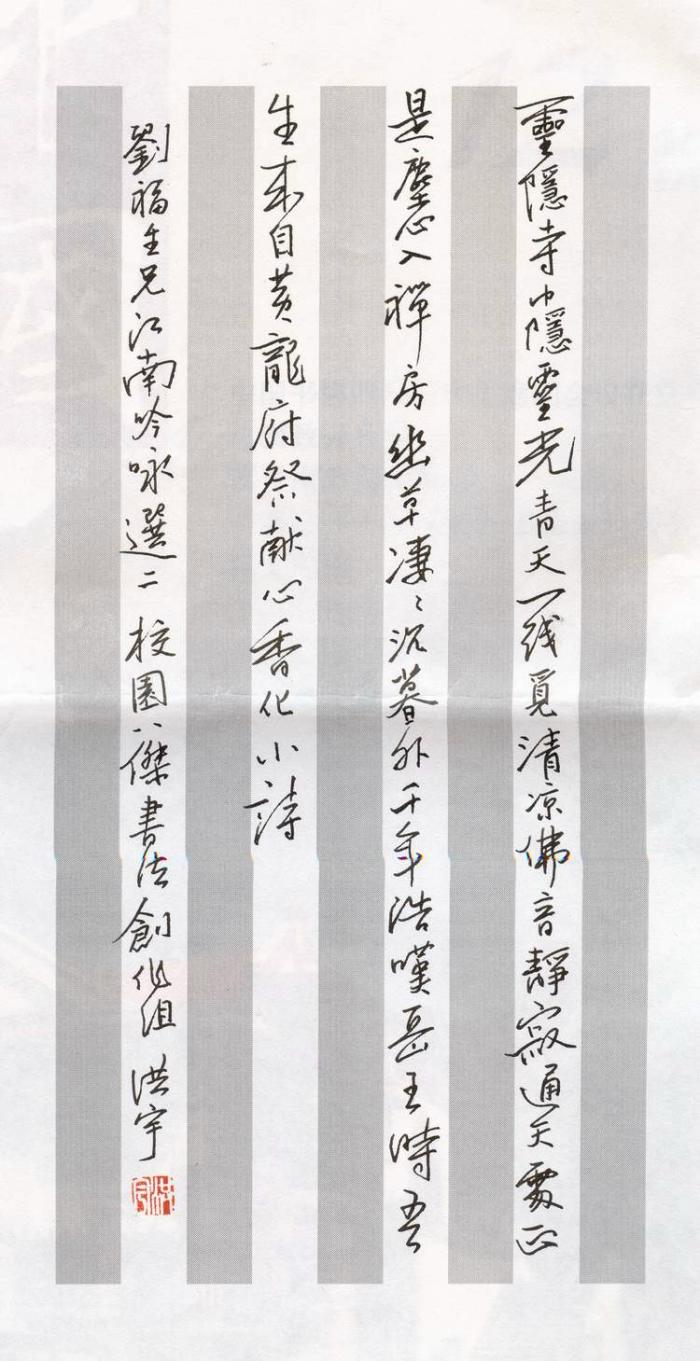 靈隱寺中隱靈光青天一线覓清凉佛音靜寂通天處正
是塵心入禪房幽草凄〻沉暮外千年浩嘆岳王時吾
生来自黄龍府祭献心香化小詩
劉福生兄江南吟咏選二 校園八傑書法創作組 洪宇